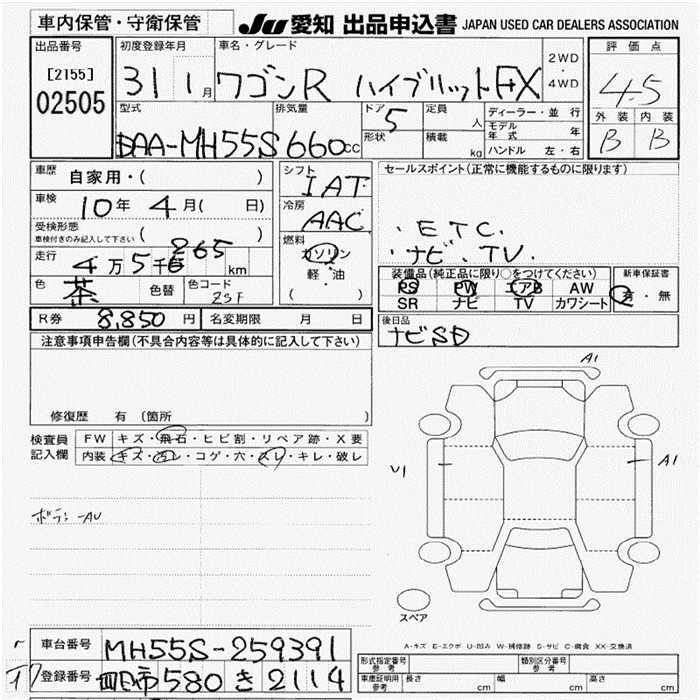 車内保管・守衛保管 JU 愛知 出品申込書 JAPAN USED CAR DEALERS ASSOCIATION
出品番号 初度登録年月 車名・グレード 2WD・4WD 評価点
[2155] 31 1月 ワゴンR ハイブリットFX 4.5
02505
型式 排気量 ドア 5 定員 人 ディーラー・並行 外装 内装
DAA-MH55S 660cc 形状 積載 kg モデル年式 年 B B
ハンドル 左・右
車歴 自家用・( ) シフト IAT セールスポイント(正常に機能するものに限ります)
車検 10年 4月( 日) 冷房 AAC ・ETC.
受検形態 車検付きのみ記入して下さい ( ) 燃料 ガソリン ・ナビ.TV.
走行 4万5千265km 軽・油 装備品(純正品に限り○をつけてください) 新車保証書
色 茶 色替 色コード ( ) PS PW エアB AW 有・無
SR ナビ TV カワシート
R券 8,850円 名変期限 月 日 後日品
ナビSD
注意事項申告欄(不具合内容等は具体的に記入して下さい)
A1
修復歴 有 (箇所 )
検査員記入欄 FW キズ・飛石・ヒビ割・リペア跡・X要
内装 キズ・汚レ・コゲ・穴・スレ・キレ・破レ
U1 A1
スペア
A-キズ E-エクボ U-凹み W-補修跡 S-サビ C-腐食 XX-交換済
車台番号 MH55S-259391
登録番号 四日市580き2114
形式指定番号 参考 類別区分番号 参考
車庫証明用 参考 長さ cm 幅 cm 高さ cm